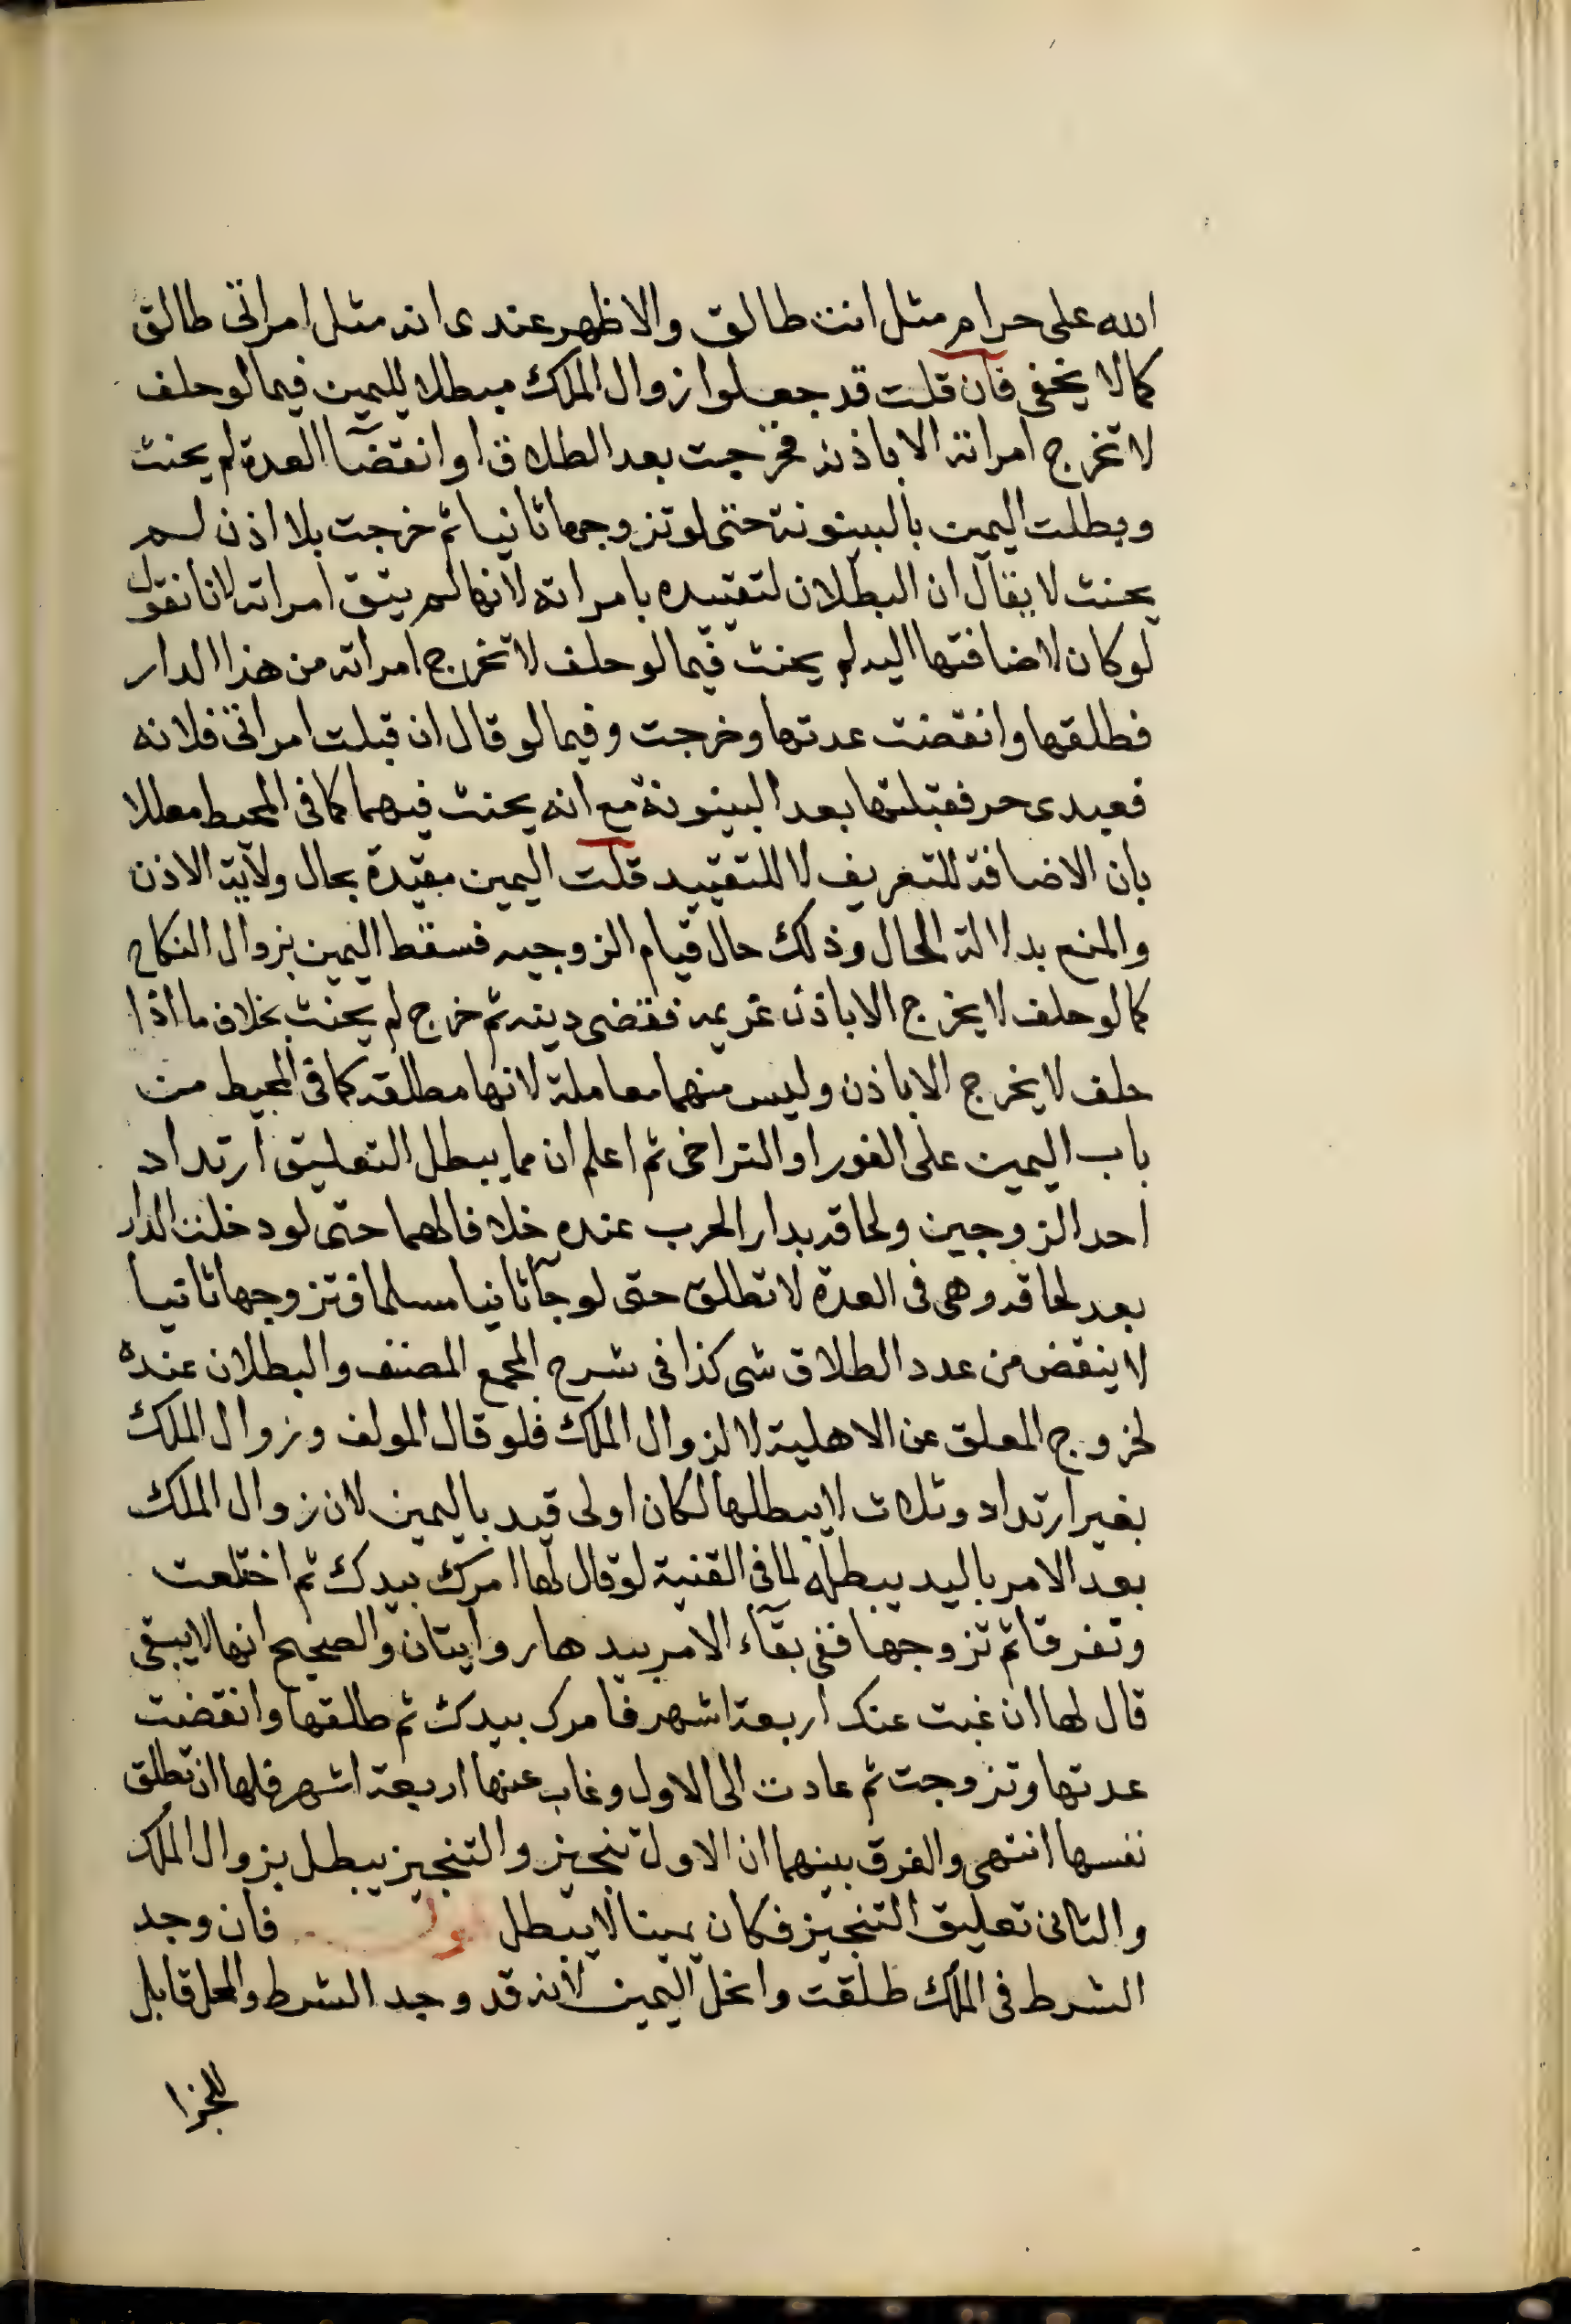 الله على حرام مثل انت طالق والاظهر عندى انه مثل امراتى طالق
كما لا يخفى فان قلت قد جعلوا زوال الملك مبطلا لليمين فيما لو حلف
لا تخرج امراته الا باذنه فخرجت بعد الطلاق او انقضآ العدة لم يحنث
وبطلت اليمين بالبينونة حتى لو تزوجها ثانيا ثم خرجت بلا اذن لم
يحنث لا يقال ان البطلان لتقييده بامراته لانها لم يتق امراته لانا نقول
لو كان لاضافتها اليه لم يحنث فيما لو حلف لا تخرج امراته من هذا الدار
فطلقها وانقضت عدتها وخرجت وفيما لو قال ان قبلت امراتى فلانه
فعبدى حر فقبلتها بعد البينونة مع انه يحنث فيهما كما فى المحيط معللا
بان الاضافة للتعريف لا للتقييد قلت اليمين مقيدة بحال ولاية الاذن
والمنع بدلالة الحال وذلك حال قيام الزوجيه فسقط اليمين بزوال النكاح
كما لو حلف لا يخرج الا باذن غريمه فقضى دينه ثم خرج لم يحنث بخلاف ما اذا
حلف لا يخرج الا باذن وليس منهما معاملة لانها مطلقه كما فى المحيط من
باب اليمين على الفور او التراخى ثم اعلم ان مما يبطل التعليق ارتداد
احد الزوجين ولحاقه بدار الحرب عنده خلافا لهما حتى لو دخلت الدار
بعد لحاقه وهى فى العدة لا تطلق حتى لو جآ ثانيا مسلما فتزوجها ثانيا
لا ينقض من عدد الطلاق شى كذا فى شرح المجمع المصنف والبطلان عنده
لخروج المعلق عن الاهلية لا لزوال الملك فلو قال المولف وزوال الملك
بغير ارتداد وثلاث لا يبطلها لكان اولى قيد باليمين لان زوال الملك
بعد الامر باليد يبطله لما فى القنية لو قال لها امرك بيدك ثم اختلعت
وتفرقا ثم تزوجها ففى بقآء الامر بيدها روايتان والصحيح انها لا يبقى
قال لها ان غبت عنك اربعة اشهر فامرك بيدك ثم طلقها وانقضت
عدتها وتزوجت ثم عادت الى الاول وغاب عنها اربعة اشهر فلها ان تطلق
نفسها انتهى والفرق بينهما ان الاول تنجيز والتنجيز يبطل بزوال الملك
والثانى تعليق التنجيز فكان يمينا لا يبطل فان وجد
الشرط فى الملك طلقت وانحل اليمين لانه قد وجد الشرط والمحل قابل
للجزا